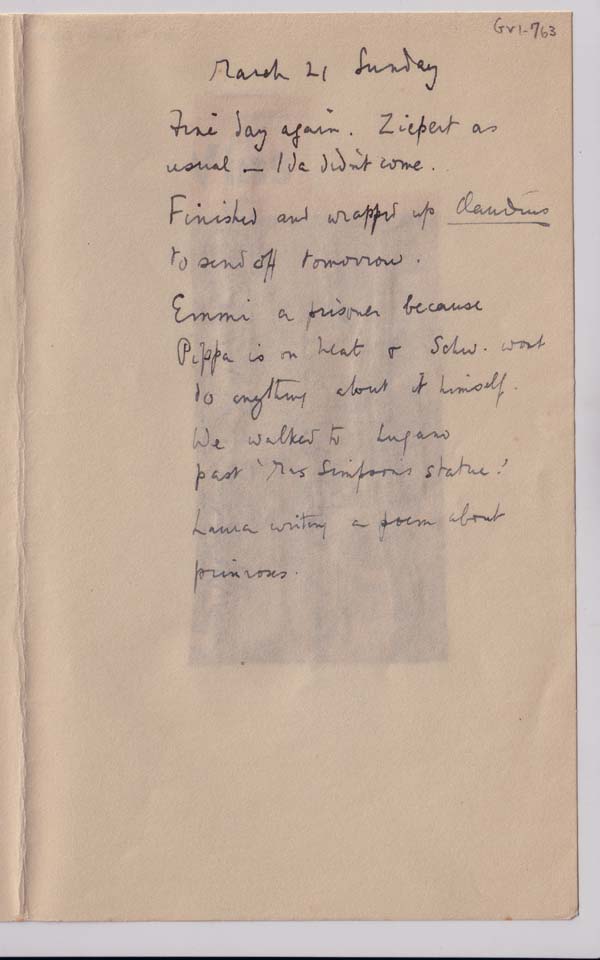 GVI-763
March 21 Sunday
Fine day again. Ziepert as
usual – Ida didn't come.
Finished and wrapped up Claudius
to send off tomorrow.
Emmi a prisoner because
Pippa is on heat & Schw. wont
do anything about it himself.
We walked to Lugano
past 'Mrs Simpson's statue.'
Laura writing a poem about
primroses.